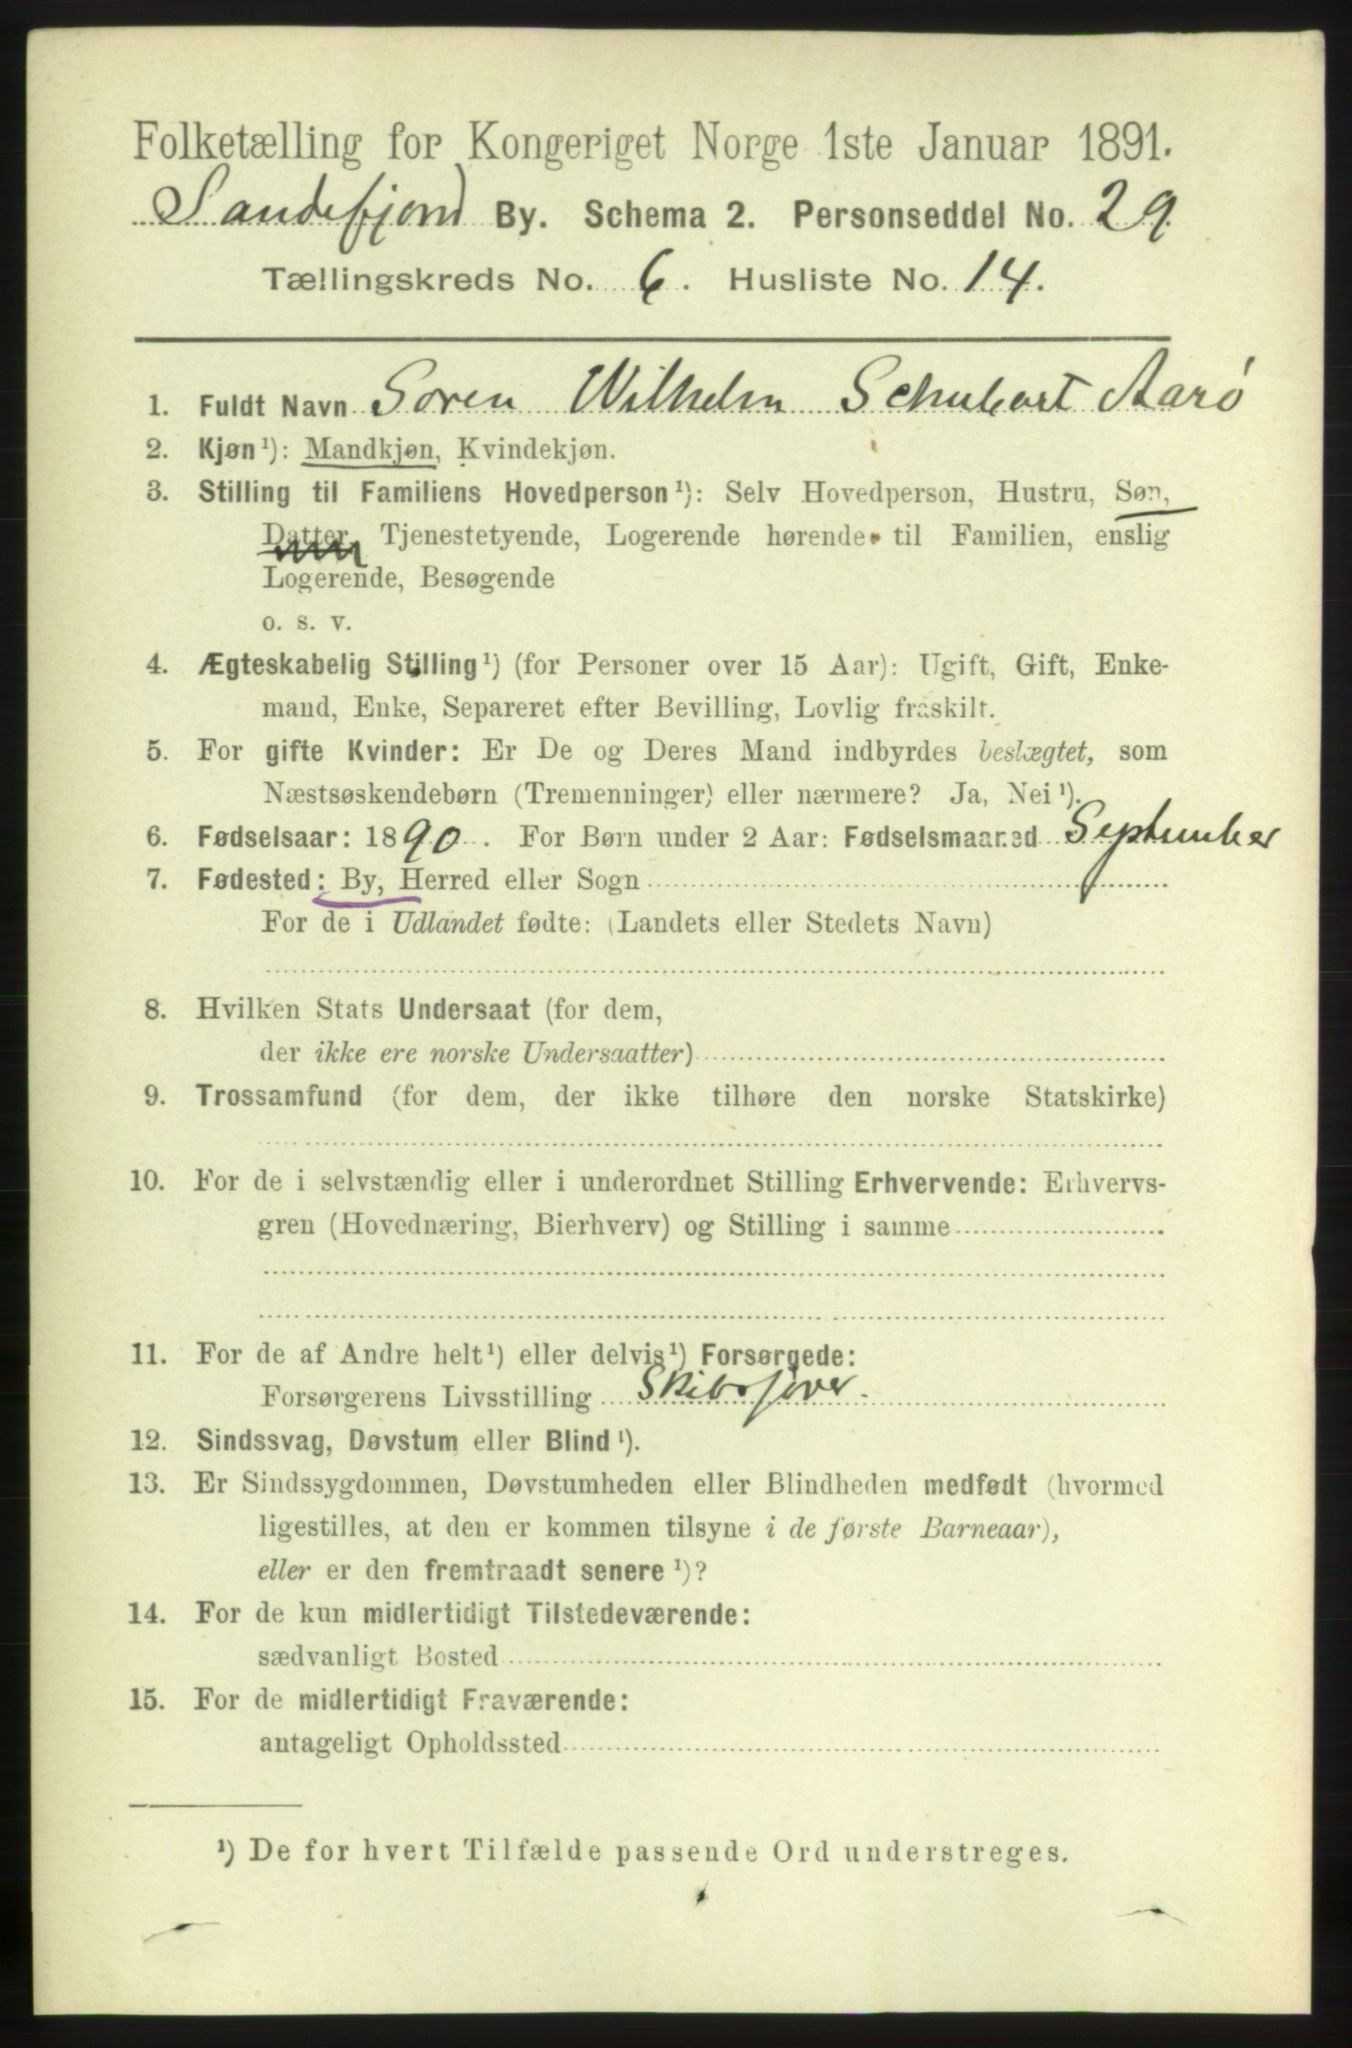 Folketælling for Kongeriget Norge 1ste Januar 1891.
Sandefjord By. Schema 2. Personseddel No. 29
Tællingskreds No. 6. Husliste No. 14.
1. Fuldt Navn Soren Wilhelm Schubart Aarö
2. Kjøn¹): Mandkjøn, Kvindekjøn.
3. Stilling til Familiens Hovedperson¹): Selv Hovedperson, Hustru, Søn,
Datter, Tjenestetyende, Logerende hørende til Familien, enslig
Logerende, Besøgende
o. s. v.
4. Ægteskabelig Stilling¹) (for Personer over 15 Aar): Ugift, Gift, Enke-
mand, Enke, Separeret efter Bevilling, Lovlig fraskilt.
5. For gifte Kvinder: Er De og Deres Mand indbyrdes beslægtet, som
Næstsøskendebørn (Tremenninger) eller nærmere? Ja, Nei¹).
6. Fødselsaar: 1890. For Børn under 2 Aar: Fødselsmaaned September
7. Fødested: By, Herred eller Sogn
For de i Udlandet fødte: (Landets eller Stedets Navn)
8. Hvilken Stats Undersaat (for dem,
der ikke ere norske Undersaatter)
9. Trossamfund (for dem, der ikke tilhøre den norske Statskirke)
10. For de i selvstændig eller i underordnet Stilling Erhvervende: Erhvervs-
gren (Hovednæring, Bierhverv) og Stilling i samme
11. For de af Andre helt¹) eller delvis¹) Forsørgede:
Forsørgerens Livsstilling Skibsfører.
12. Sindssvag, Døvstum eller Blind¹).
13. Er Sindssygdommen, Døvstumheden eller Blindheden medfødt (hvormed
ligestilles, at den er kommen tilsyne i de første Barneaar),
eller er den fremtraadt senere¹)?
14. For de kun midlertidigt Tilstedeværende:
sædvanligt Bosted
15. For de midlertidigt Fraværende:
antageligt Opholdssted
¹) De for hvert Tilfælde passende Ord understreges.